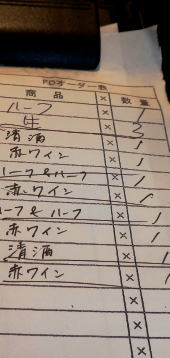 FDオーダー数
商品 × 数量
ハーフ × 1
生 × 3
清酒 × 1
赤ワイン × 1
ハーフ&ハーフ × 1
赤ワイン × 1
ハーフ&ハーフ × 1
赤ワイン × 1
清酒 × 1
赤ワイン × 1
×
×
×